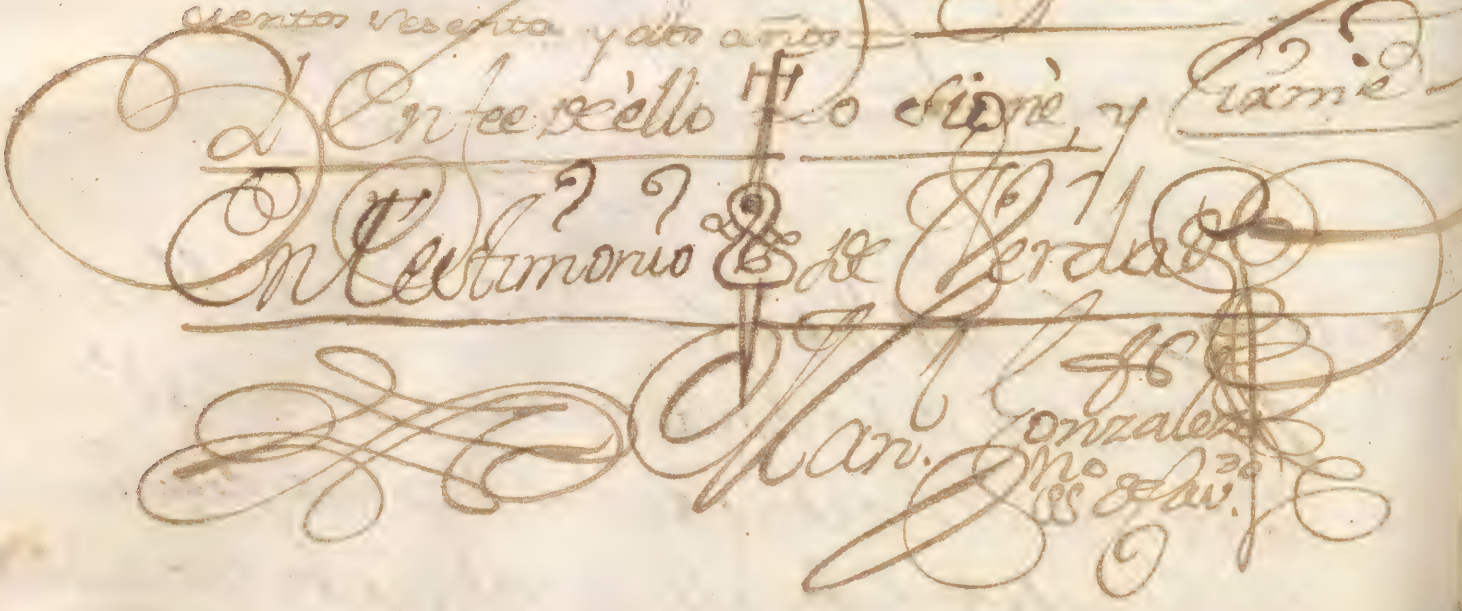 cientos sesenta y dos años
En fee de ello lo signè y firmè
En testimonio de Verdad
Man. Gonzalez